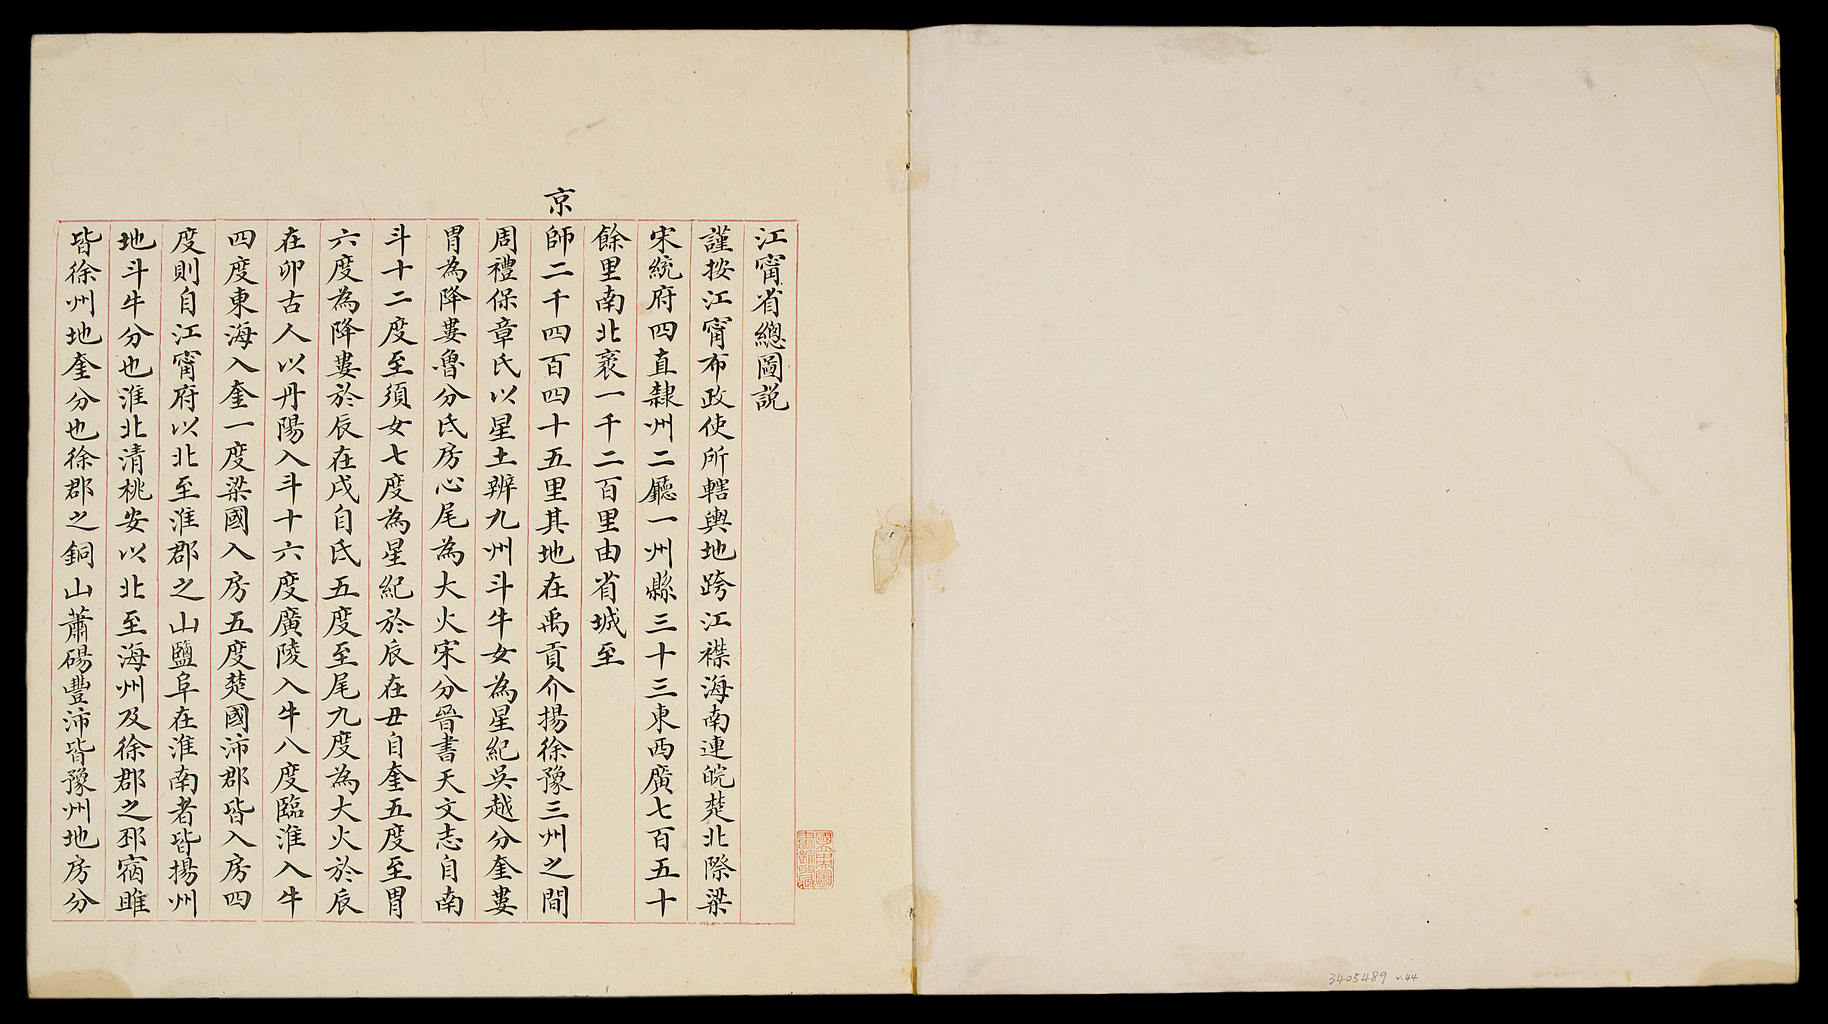 江甯省總圖説
謹按江甯布政使所轄輿地跨江襟海南連皖楚北際梁
宋統府四直隸州二廳一州縣三十三東西廣七百五十
餘里南北袤一千二百里由省城至
京師二千四百四十五里其地在禹貢介揚徐豫三州之間
周禮保章氏以星土辨九州斗牛女為星紀吳越分奎婁
胃為降婁魯分氐房心尾為大火宋分晉書天文志自南
斗十二度至須女七度為星紀於辰在丑自奎五度至胃
六度為降婁於辰在戌自氐五度至尾九度為大火於辰
在卯古人以丹陽入斗十六度廣陵入牛八度臨淮入牛
四度東海入奎一度梁國入房五度楚國沛郡皆入房四
度則自江甯府以北至淮郡之山鹽阜在淮南者皆揚州
地斗牛分也淮北清桃安以北至海州及徐郡之邳宿睢
皆徐州地奎分也徐郡之銅山蕭碭豐沛皆豫州地房分
3405489 v.44